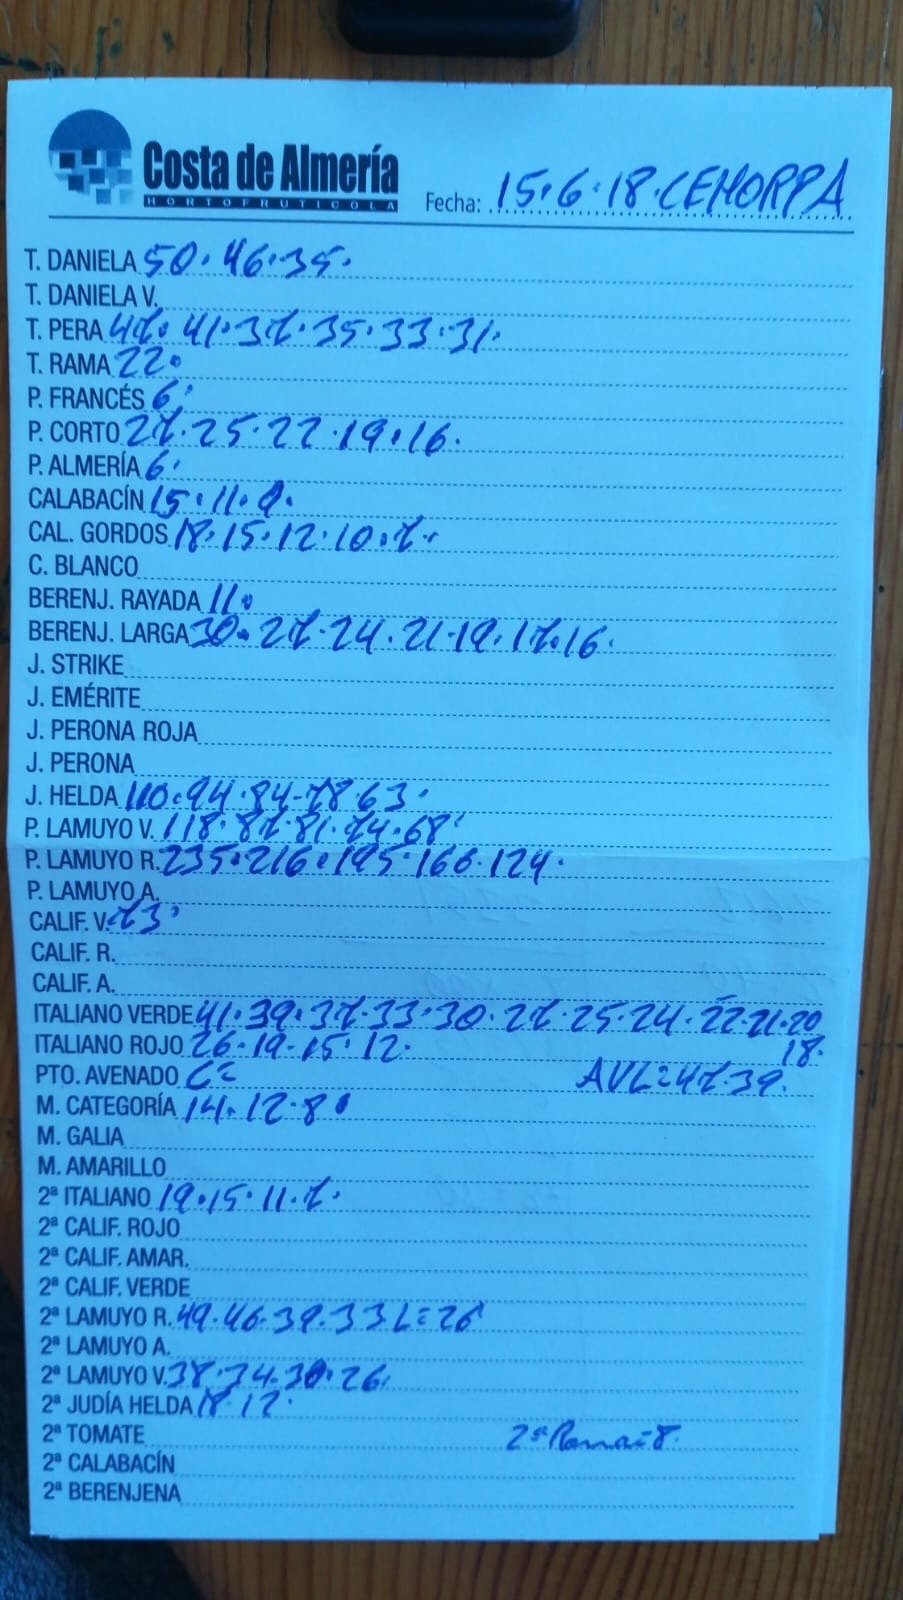 Costa de Almería
HORTOFRUTICOLA
Fecha: 15.6.18.CEHORPA
T. DANIELA 50.46.35.
T. DANIELA V.
T. PERA 47.41.37.35.33.31.
T. RAMA 22.
P. FRANCÉS 6'
P. CORTO 27.25.22.19.16.
P. ALMERÍA 6.
CALABACÍN 15.11.9.
CAL. GORDOS 18.15.12.10.7.
C. BLANCO
BERENJ. RAYADA 11.
BERENJ. LARGA 30.27.24.21.19.17.16.
J. STRIKE
J. EMÉRITE
J. PERONA ROJA
J. PERONA
J. HELDA 110.94.84-78.63'
P. LAMUYO V. 118.87.81.74.68'
P. LAMUYO R. 235.216.195.166.124.
P. LAMUYO A.
CALIF. V. 73'
CALIF. R.
CALIF. A.
ITALIANO VERDE 41.39.37.33.30.27.25.24.22.21.20
ITALIANO ROJO 26-19-15.12. 18.
PTO. AVENADO C= AVL=47.39.
M. CATEGORÍA 14.12.8.
M. GALIA
M. AMARILLO
2ª ITALIANO 19.15.11.7.
2ª CALIF. ROJO
2ª CALIF. AMAR.
2ª CALIF. VERDE
2ª LAMUYO R. 49.46.39.33 L=26'
2ª LAMUYO A.
2ª LAMUYO V. 38.34.30.26.
2ª JUDÍA HELDA 18.12.
2ª TOMATE 2ª Rama=8.
2ª CALABACÍN
2ª BERENJENA